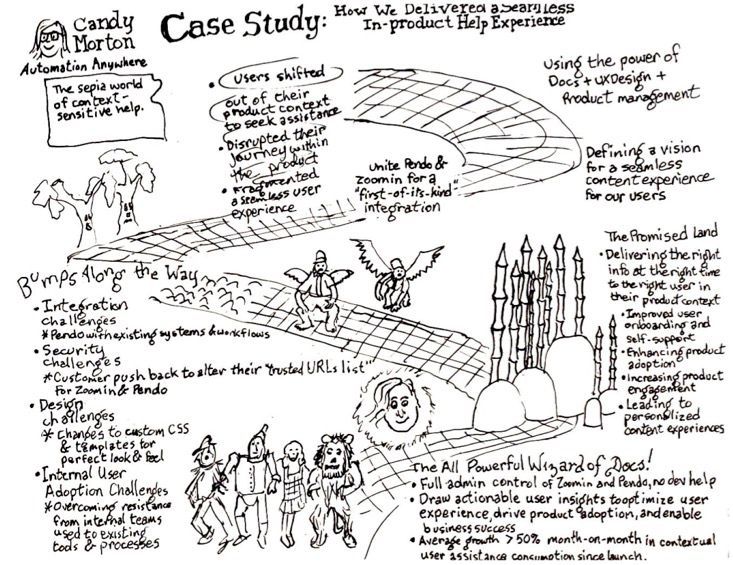 Candy
Morton
Automation Anywhere
Case Study:
How We Delivered a Seamless
In-product Help Experience
The sepia world
of context-
sensitive help.
• Users shifted
out of their
product context
to seek assistance
• Disrupted their
journey within
the product
• Fragmented
a seamless user
experience
Unite Pendo &
Zoomin for a
"first-of-its-kind"
integration
Using the power of
Docs + UXDesign +
Product management
Defining a vision
for a seamless
content experience
for our users
Bumps Along the Way
• Integration
challenges
* Pendo with existing systems & workflows
• Security
challenges
* Customer push back to alter their "trusted URLs list"
for Zoomin & Pendo
• Design
challenges
* Changes to custom CSS
& templates for
perfect look & feel
• Internal User
Adoption Challenges
* Overcoming resistance
from internal teams
used to existing
tools & processes
The Promised Land
• Delivering the right
info at the right time
to the right user in
their product context
• Improved user
onboarding and
self-support
• Enhancing product
adoption
• Increasing product
engagement
• Leading to
personalized
content experiences
The All Powerful Wizard of Docs!
• Full admin control of Zoomin and Pendo, no dev help
• Draw actionable user insights to optimize user
experience, drive product adoption, and enable
business success
• Average growth > 50% month-on-month in contextual
user assistance consumotion since launch.